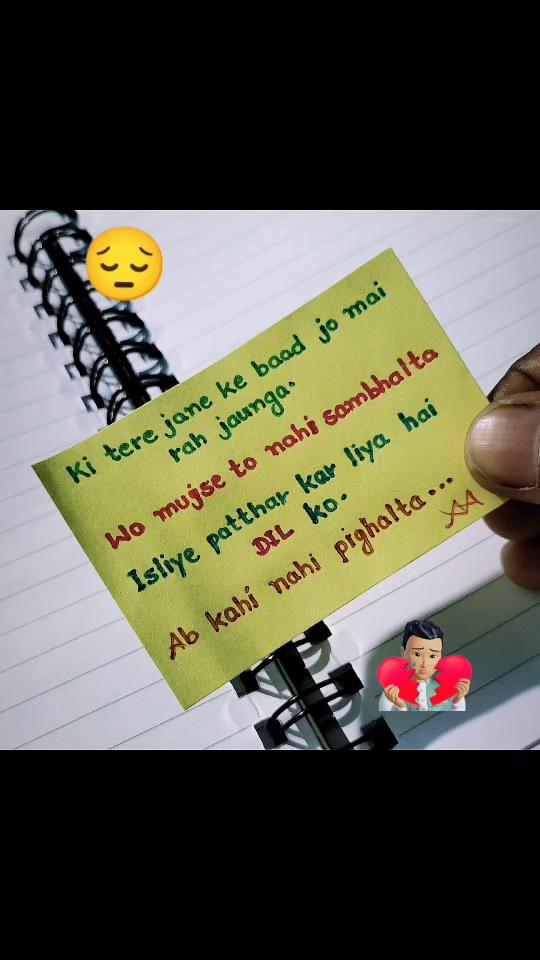 Ki tere jane ke baad jo mai
rah jaunga.
Wo mujse to nahi sambhalta
Isliye patthar kar liya hai
DIL ko.
Ab kahi nahi pighalta...
AA